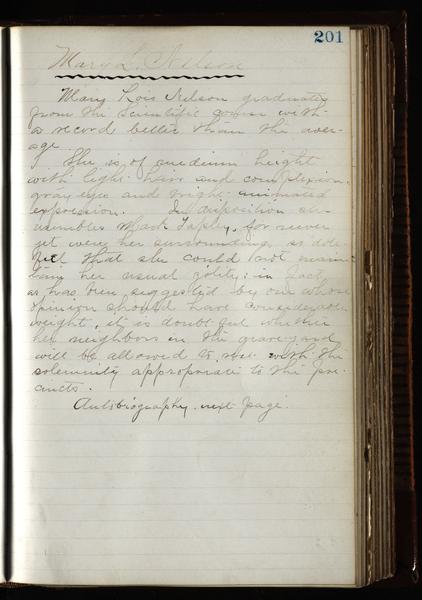 201
Mary L. Nelson
Mary Lois Nelson graduates
from the Scientific course with
a record better than the aver-
age.
She is of medium height
with light hair and complexion,
gray eyes and bright animated
expression. In disposition she
resembles Mark Tapley, for never
yet were her surroundings so dole-
ful that she could not main-
tain her usual jolity: in fact,
as has been suggested by one whose
opinion should have considerable
weight, it is doubtful whether
her neighbors in the graveyard
will be allowed to rest with the
solemnity appropriate to the pre-
cincts.
Autobiography next page.